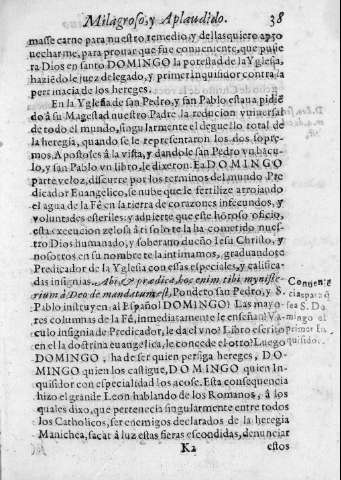 Milagroso, y Aplaudido. 38
masse carne para nuestro remedio, y dellas quiero apro
uecharme, para prouar que fue conueniente, que pusie
ra Dios en santo DOMINGO la potestad de la Yglesia,
haziẽdole juez delegado, y primer inquisidor contra la
pertinacia de los hereges.
En la Yglesia de san Pedro, y san Pablo estaua pidiẽ
do à su Magestad nuestro Padre la reducion vniuersal
de todo el mundo, singularmente el deguello total de
la heregia, quando se le representaron los dos supre-
mos Apostoles à la vista, y dandole san Pedro vn bacu-
lo, y san Pablo vn libro, le dixeron. Ea DOMINGO
parte veloz, discurre por los terminos del mundo Pre
dicador Euangelico, se nube que le fertilize arrojando
el agua de la Fè en la tierra de corazones infecundos, y
voluntades esteriles: y aduierte que este hõroso oficio,
esta execucion zelosa à ti solo te la ha cometido nues-
tro Dios humanado, y soberano dueño Iesu Christo, y
nosotros en su nombre te la intimamos, graduandote
Predicador de la Yglesia con essas especiales, y califica-
das insignias. Abi, & prædica, hoc enim tibi myniste-
rium à Deo mandatum est. Pondero: san Pedro, y S.
Pablo instruyen al Español DOMINGO? Las mayo-
res columnas de la Fè, inmediatamente le enseñan? Va-
culo insignia de Predicador, le da el vno? Libro escrito
en el la dotrina euangelica, le concede el otro? Luego
DOMINGO, ha de ser quien persiga hereges, DO-
MINGO quien los castigue, DOMINGO quien In-
quisidor con especialidad los acose. Esta consequencia
hizo el grande Leon hablando de los Romanos, à los
quales dixo, que pertenecia singularmente entre todos
los Catholicos, ser enemigos declarados de la heregia
Manichea, sacar à luz estas fieras escondidas, denunciar
K2 estos
Conuenẽ
cias para q̃
fues S. Do
mingo el
primer In
quisidor.